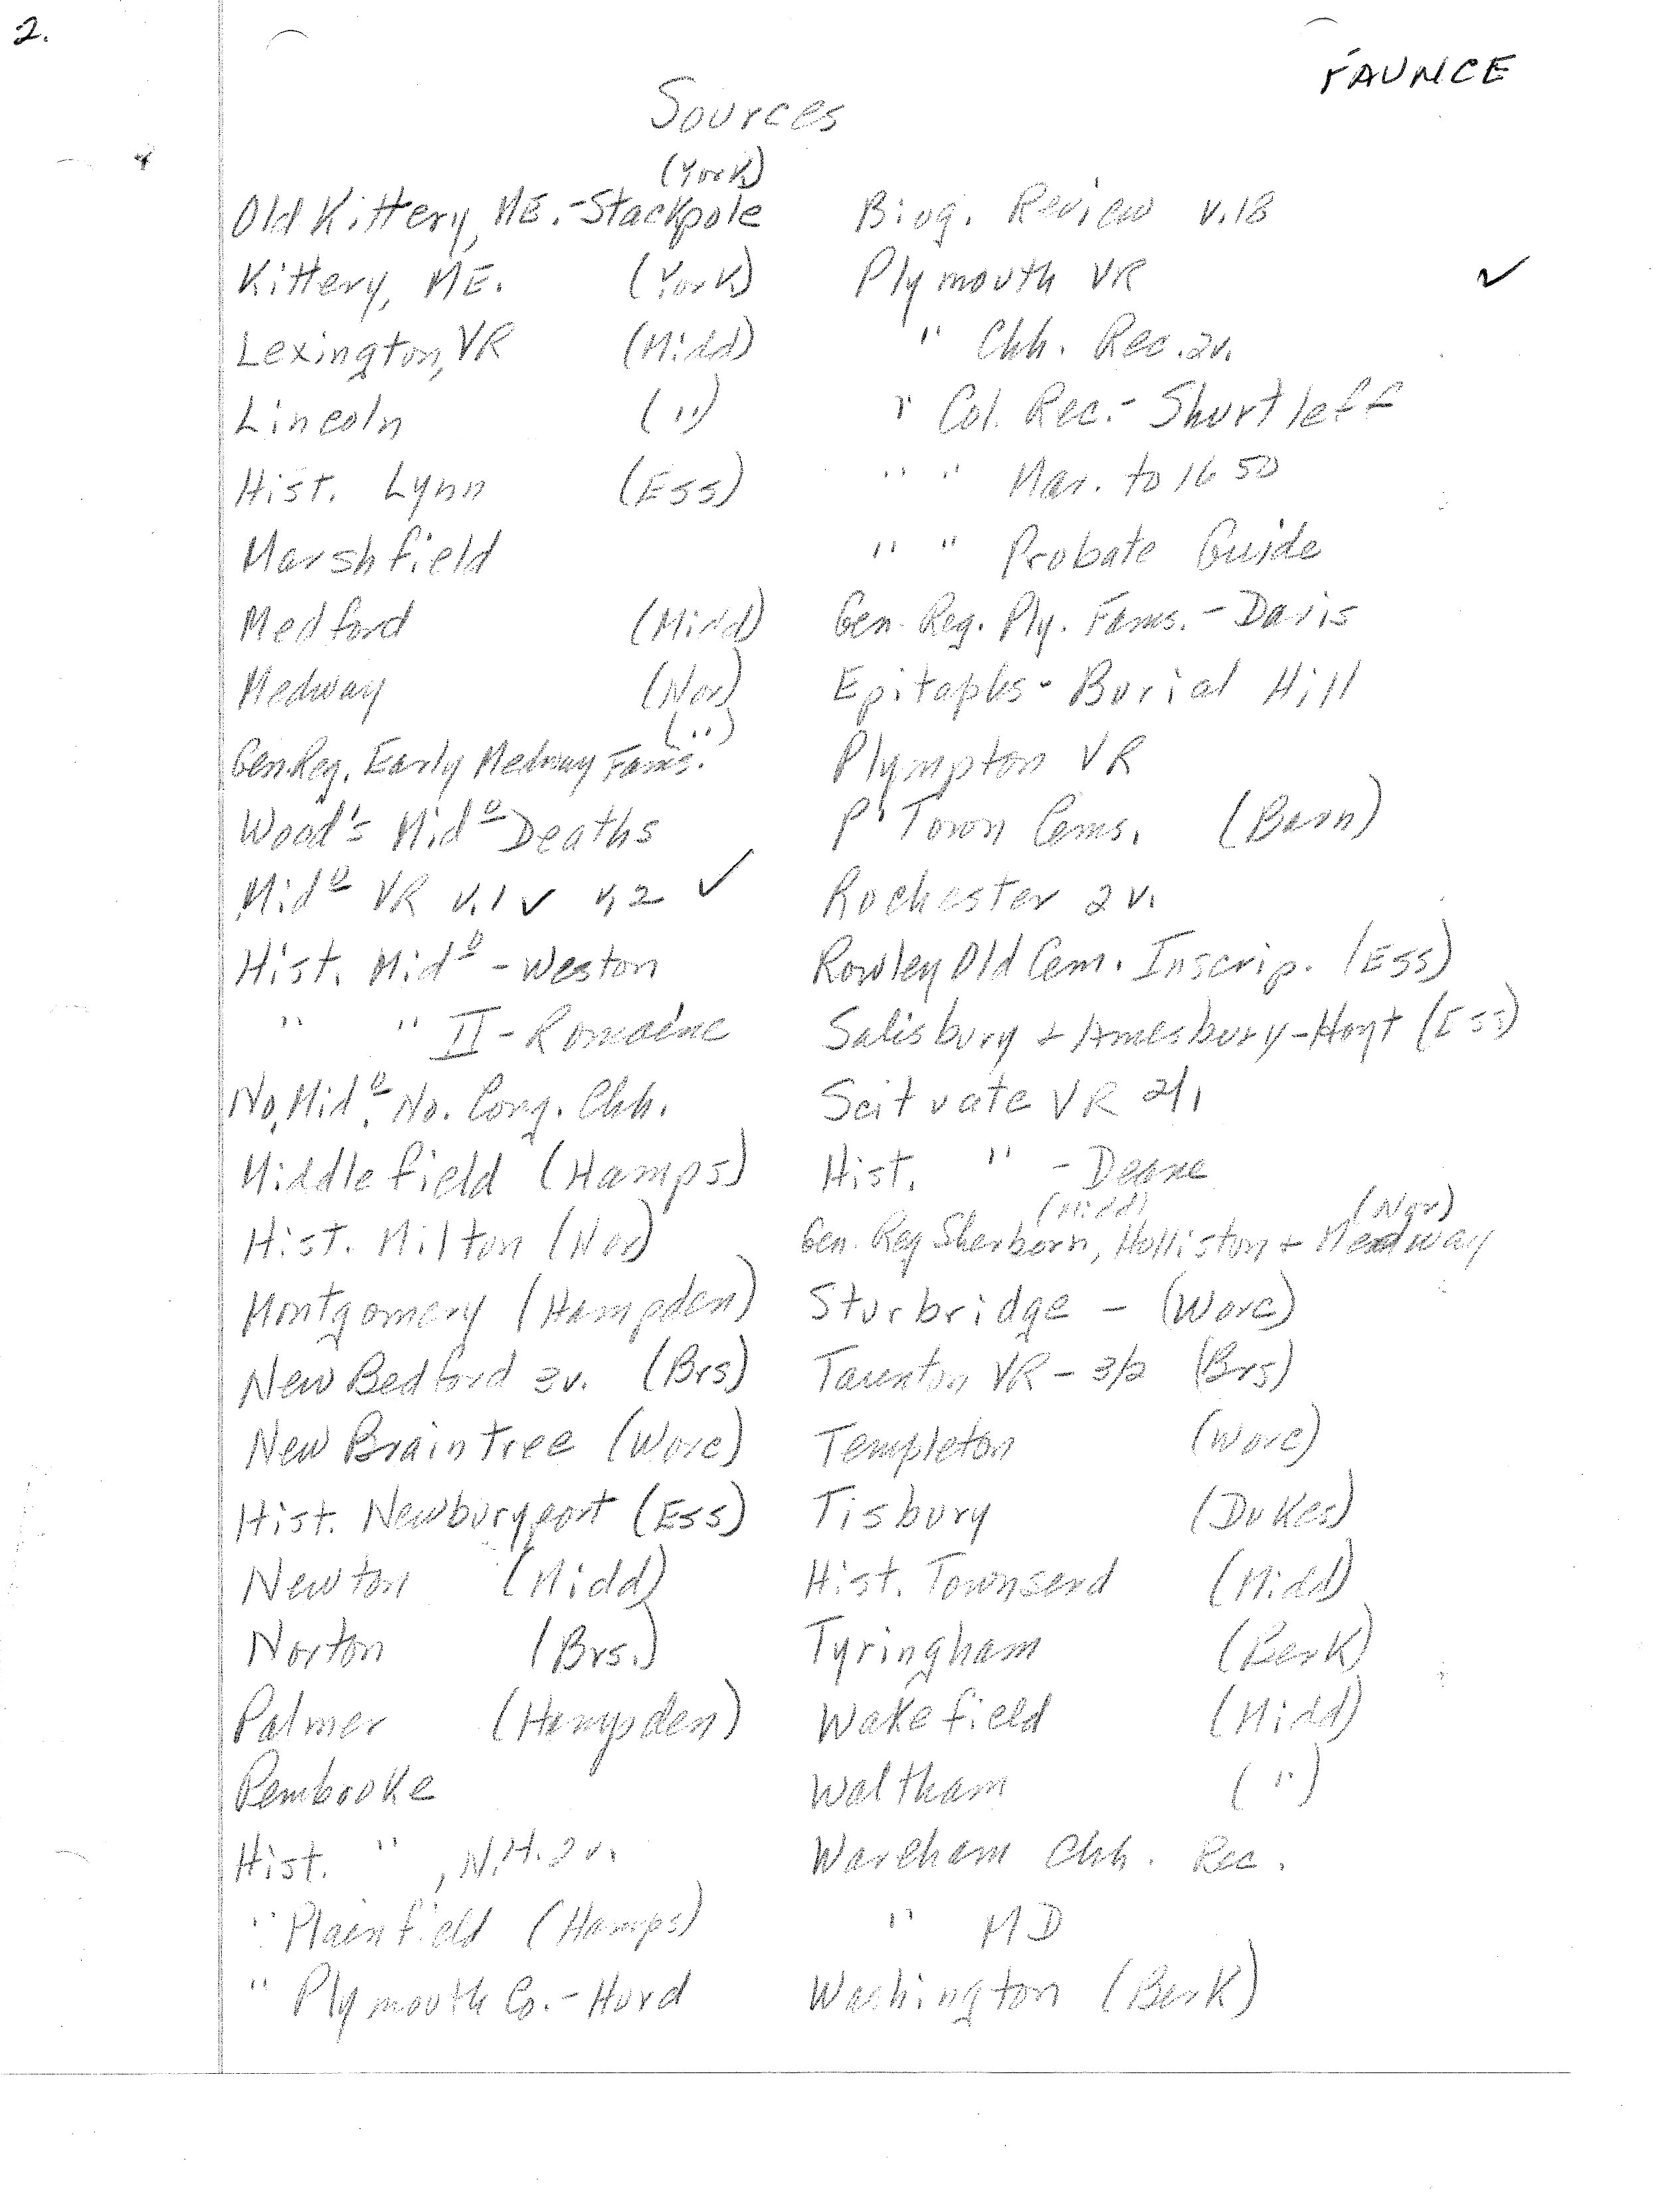 2.
FAUNCE
Sources
(York)
Old Kittery, ME.-Stackpole
Kittery, ME. (York)
Lexington, VR (Midd)
Lincoln (")
Hist. Lynn (Ess)
Marshfield
Medford (Midd)
Medway (Nor)
(")
Gen. Reg. Early Medway Fams.
Wood's Mid⁰ Deaths
Mid⁰ VR v.1 ✓ v.2 ✓
Hist. Mid⁰ - Weston
" " II - Romaine
No. Mid⁰. No. Cong. Chh.
Middlefield (Hamps)
Hist. Milton (Nor)
Montgomery (Hampden)
New Bedford 3v. (Brs)
New Braintree (Worc)
Hist. Newburyport (Ess)
Newton (Midd)
Norton (Brs.)
Palmer (Hampden)
Pembroke
Hist. ", N.H. 2v.
" Plainfield (Hamps)
" Plymouth Co. - Hurd
Biog. Review v.18
Plymouth VR ✓
" Chh. Rec. 2v.
" Col. Rec. - Shurtleff
" " Mar. to 1650
" " Probate Guide
Gen. Reg. Ply. Fams. - Davis
Epitaphs - Burial Hill
Plympton VR
P'Town Cems. (Barn)
Rochester 2v.
Rowley Old Cem. Inscrip. (Ess)
Salisbury + Amesbury - Hoyt (Ess)
Scituate VR 2/1
Hist. " - Deane
(Midd) (Nor)
Gen. Reg Sherborn, Holliston + Medway
Sturbridge - (Worc)
Taunton VR - 3/2 (Brs)
Templeton (Worc)
Tisbury (Dukes)
Hist. Townsend (Midd)
Tyringham (Berk)
Wakefield (Midd)
Waltham (")
Wareham Chh. Rec.
" MD
Washington (Berk)